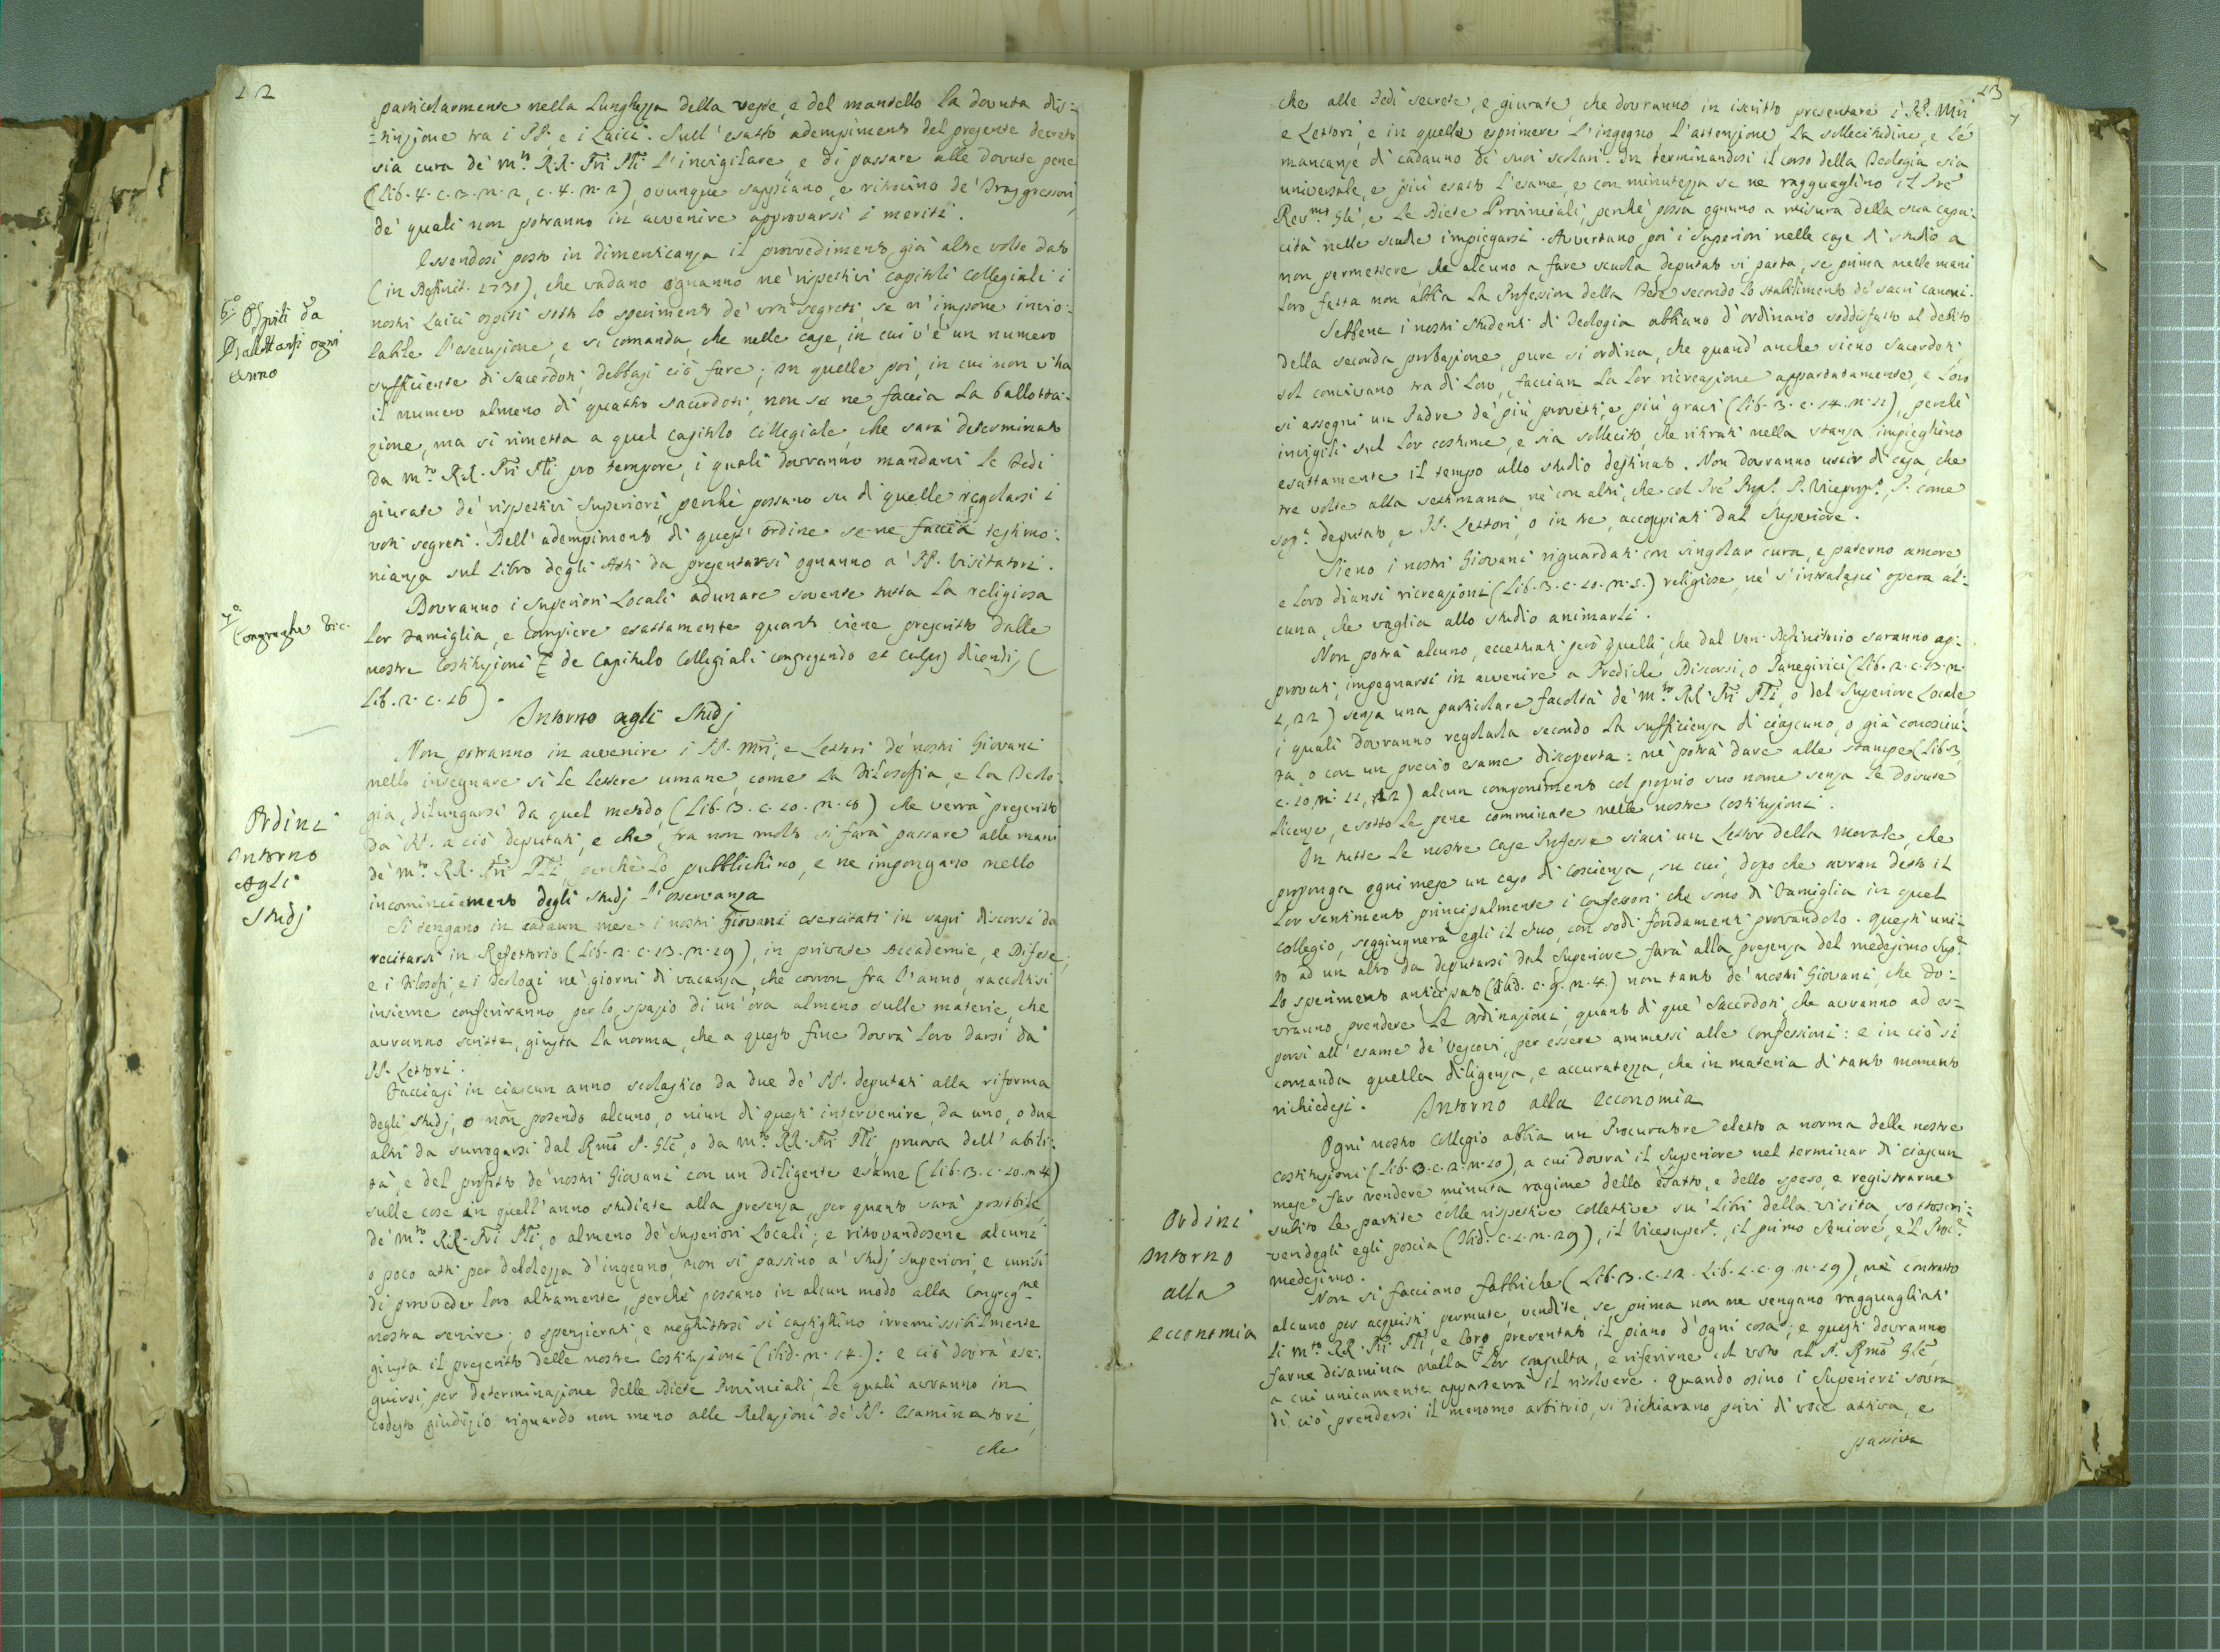 12
particolarmente nella lunghezza della veste, e del mantello la dovuta dis=
=tinzione tra i PP. e i Laici. Sull'esatto adempimento del presente decreto
sia cura de' m.to RR. Pri Pli l'invigilare, e di passare alle dovute pene
(Lib. 4. c. 3. n. 2, c. 4. n. 2), ovunque sappiano, e ritrovino de' Trasgressori,
de' quali non potranno in avvenire approvarsi i meriti.
Essendosi posto in dimenticanza il provvedimento già altre volte dato
(in Definit. 1731), che vadano ognanno ne' rispettivi capitoli Collegiali i
nostri Laici ospiti sotto lo sperimento de' voti segreti, se n'impone invio=
labile l'esecuzione, e si comanda, che nelle case, in cui v'è un numero
sufficiente di Sacerdoti, debbasi ciò fare; In quelle poi, in cui non v'ha
il numero almeno di quattro sacerdoti, non se ne faccia la ballotta=
zione, ma si rimetta a quel capitolo Collegiale, che sarà determinato
da m.to RR. Pri Pli pro tempore, i quali dovranno mandarvi le Fedi
giurate de' rispettivi Superiori, perché possano su di quelle regolarsi i
voti segreti. Dell'adempimento di quest'ordine se ne faccia testimo=
nianza sul Libro degli Atti da presentarsi ognanno a' PP. Visitatori.
Dovranno i Superiori Locali adunare sovente tutta la religiosa
lor Famiglia, e compiere esattamente quanto viene prescritto dalle
nostre Costituzioni de Capitulo Collegiali congregando et culpis dicendis (
Lib. 2. c. 16).
Intorno agli Studj
Non potranno in avvenire i PP. Mri, e Lettori de' nostri Giovani
nello insegnare sì le lettere umane, come la Filosofia, e la Teolo=
gia, dilungarsi da quel metodo (Lib. 3. c. 10. n. 8) che verrà prescritto
da' PP. a ciò deputati, e che fra non molto si farà passare alle mani
de' m.to RR. Pri Pli, perchè lo pubblichino, e ne impongano nello
incominciamento degli Studj l'osservanza
Si tengano in cadaun mese i nostri Giovani esercitati in sagri discorsi da
recitarsi in Refettorio (Lib. 2. c. 13. n. 19), in private Accademie, e Difese;
e i Filosofi, e i Teologi ne' giorni di vacanza, che corron fra l'anno, raccoltisi
insieme conferiranno per lo spazio di un'ora almeno sulle materie, che
avranno scritte, giusta la norma, che a questo fine dovrà loro darsi da'
PP. Lettori.
Facciasi in ciascun anno scolastico da due de' PP. deputati alla riforma
degli Studj, o non potendo alcuno, o niun di questi intervenire, da uno, o due
altri da surrogarsi dal Rmo P. Gle, o da m.to RR. Pri Pli pruova dell'abili=
tà, e del profitto de' nostri Giovani con un diligente esame (Lib. 3. c. 10. n. 4)
sulle cose in quell'anno studiate alla presenza, per quanto sarà possibile,
de' m.to RR. Pri Pli, o almeno de' Superiori Locali; e ritrovandosene alcuni
o poco atti per debolezza d'ingegno, non si passino a' Studj superiori, e curisi
di proveder loro altramente, perchè possano in alcun modo alla Congreg.ne
nostra servire; o spenzierati, e neghittosi si castighino irremissibilmente
giusta il prescritto delle nostre Costituzioni (ibid. n. 14.): e ciò dovrà ese=
guirsi per determinazione delle Diete Provinciali, le quali avranno in
codesto giudizio riguardo non meno alle Relazioni de' PP. Esaminatori,
che
6.o Ospiti da
Ballottarsi ogni
Anno
7.o
Congreghe
Ordini
Intorno
Agli
Studj
13
che alle Fedi secrete, e giurate, che dovranno in iscritto presentare i PP. Mri,
e Lettori, e in quelle esprimere l'ingegno, l'attenzione, la sollecitudine, e le
mancanze di cadauno de' suoi scolari. In terminandosi il corso della Teologia sia
universale, e più esatto l'esame, e con minutezza se ne ragguaglino il Pre
Rev.mo Gle, e le Diete Provinciali, perchè possa ognuno a misura della sua capa=
cità nelle scuole impiegarsi. Avvertano poi i Superiori nelle case di studio a
non permettere che alcuno a fare scuola deputato vi parta, se prima nelle mani
loro fatta non abbia la Profession della Fede secondo lo stabilimento de' sacri canoni.
Sebbene i nostri Studenti di Teologia abbiano d'ordinario soddisfatto al debito
della seconda probazione, pure si ordina, che quand'anche sieno Sacerdoti,
sol convivano tra di loro, faccian la lor ricreazione appartatamente, e loro
si assegni un Padre de' più provetti, e più gravi (Lib. 3. c. 14. n. 11), perchè
invigili sul lor costume, e sia sollecito, che ritirati nella stanza impieghino
esattamente il tempo allo studio destinato. Non dovranno uscir di casa, che
tre volte alla settimana, nè con altri, che col Pre Prep.to P. Viceprep.to, P. come
sop.a deputato, e PP. Lettori, o in tre, accoppiati dal Superiore.
Sieno i nostri Giovani riguardati con singolar cura, e paterno amore,
e loro diansi ricreazioni (Lib. 3. c. 10. n. 5.) religiose, nè s'intralasci opera al=
cuna, che vaglia allo studio animarli.
Non potrà alcuno, eccettuati però quelli, che dal Ven. Definitorio saranno ap=
provati, impegnarsi in avvenire a Prediche, Discorsi, o Panegirici (Lib. 2. c. 13. n.
2, 22) senza una particolare facoltà de' m.to RR. Pri Pli, o del Superiore Locale,
i quali dovranno regolarla secondo la sufficienza di ciascuno, o già conosciu=
ta, o con un previo esame discoperta: nè potrà dare alle stampe (Lib. 3.
c. 10, n. 11, 12) alcun componimento col proprio suo nome senza le dovute
licenze, e sotto le pene comminate nelle nostre Costituzioni.
In tutte le nostre Case Professe siavi un Lettor della Morale, che
proponga ogni mese un caso di coscienza, su cui, dopo che avran detto il
lor sentimento principalmente i confessori che sono di Famiglia in quel
Collegio, soggiugnerà egli il suo, con sodi fondamenti provandolo. Questi uni=
to ad un altro da deputarsi dal Superiore farà alla presenza del medesimo Sup.e
lo sperimento anticipato (Ibid. c. 9. n. 4.) non tanto de' nostri Giovani, che do=
vranno prendere le Ordinazioni, quanto di que' Sacerdoti, che avranno ad es=
porsi all'esame de' Vescovi, per essere ammessi alle Confessioni: e in ciò si
comanda quella diligenza, e accuratezza, che in materia di tanto momento
richiedesi.
Intorno alla Economia
Ogni nostro Collegio abbia un Procuratore eletto a norma delle nostre
Costituzioni (Lib. 3. c. 2. n. 10), a cui dovrà il Superiore nel terminar di ciascun
mese far rendere minuta ragione dello esatto, e dello speso, e registrarne
subito le partite colle rispettive collettive su' Libri della Visita, sottoscri=
vendogli egli poscia (Ibid. c. 2. n. 29), il Vicesuper.e, il primo Seniore, e 'l Proc.e
medesimo.
Non si facciano fabbriche (Lib. 3. c. 12. Lib. 2. c. 9. n. 19), nè contratto
alcuno per acquisti, permute, vendite, se prima non ne vengano ragguagliati
li m.to RR. Pri Pli, e loro presentato il piano d'ogni cosa; e questi dovranno
farne disamina nella lor consulta, e riferirne il voto al P. Rmo Gle,
a cui unicamente apparterrà il risolvere. Quando osino i Superiori sovra
di ciò prendersi il menomo arbitrio, si dichiarano privi di voce attiva, e
passiva
Ordini
Intorno
alla
economia